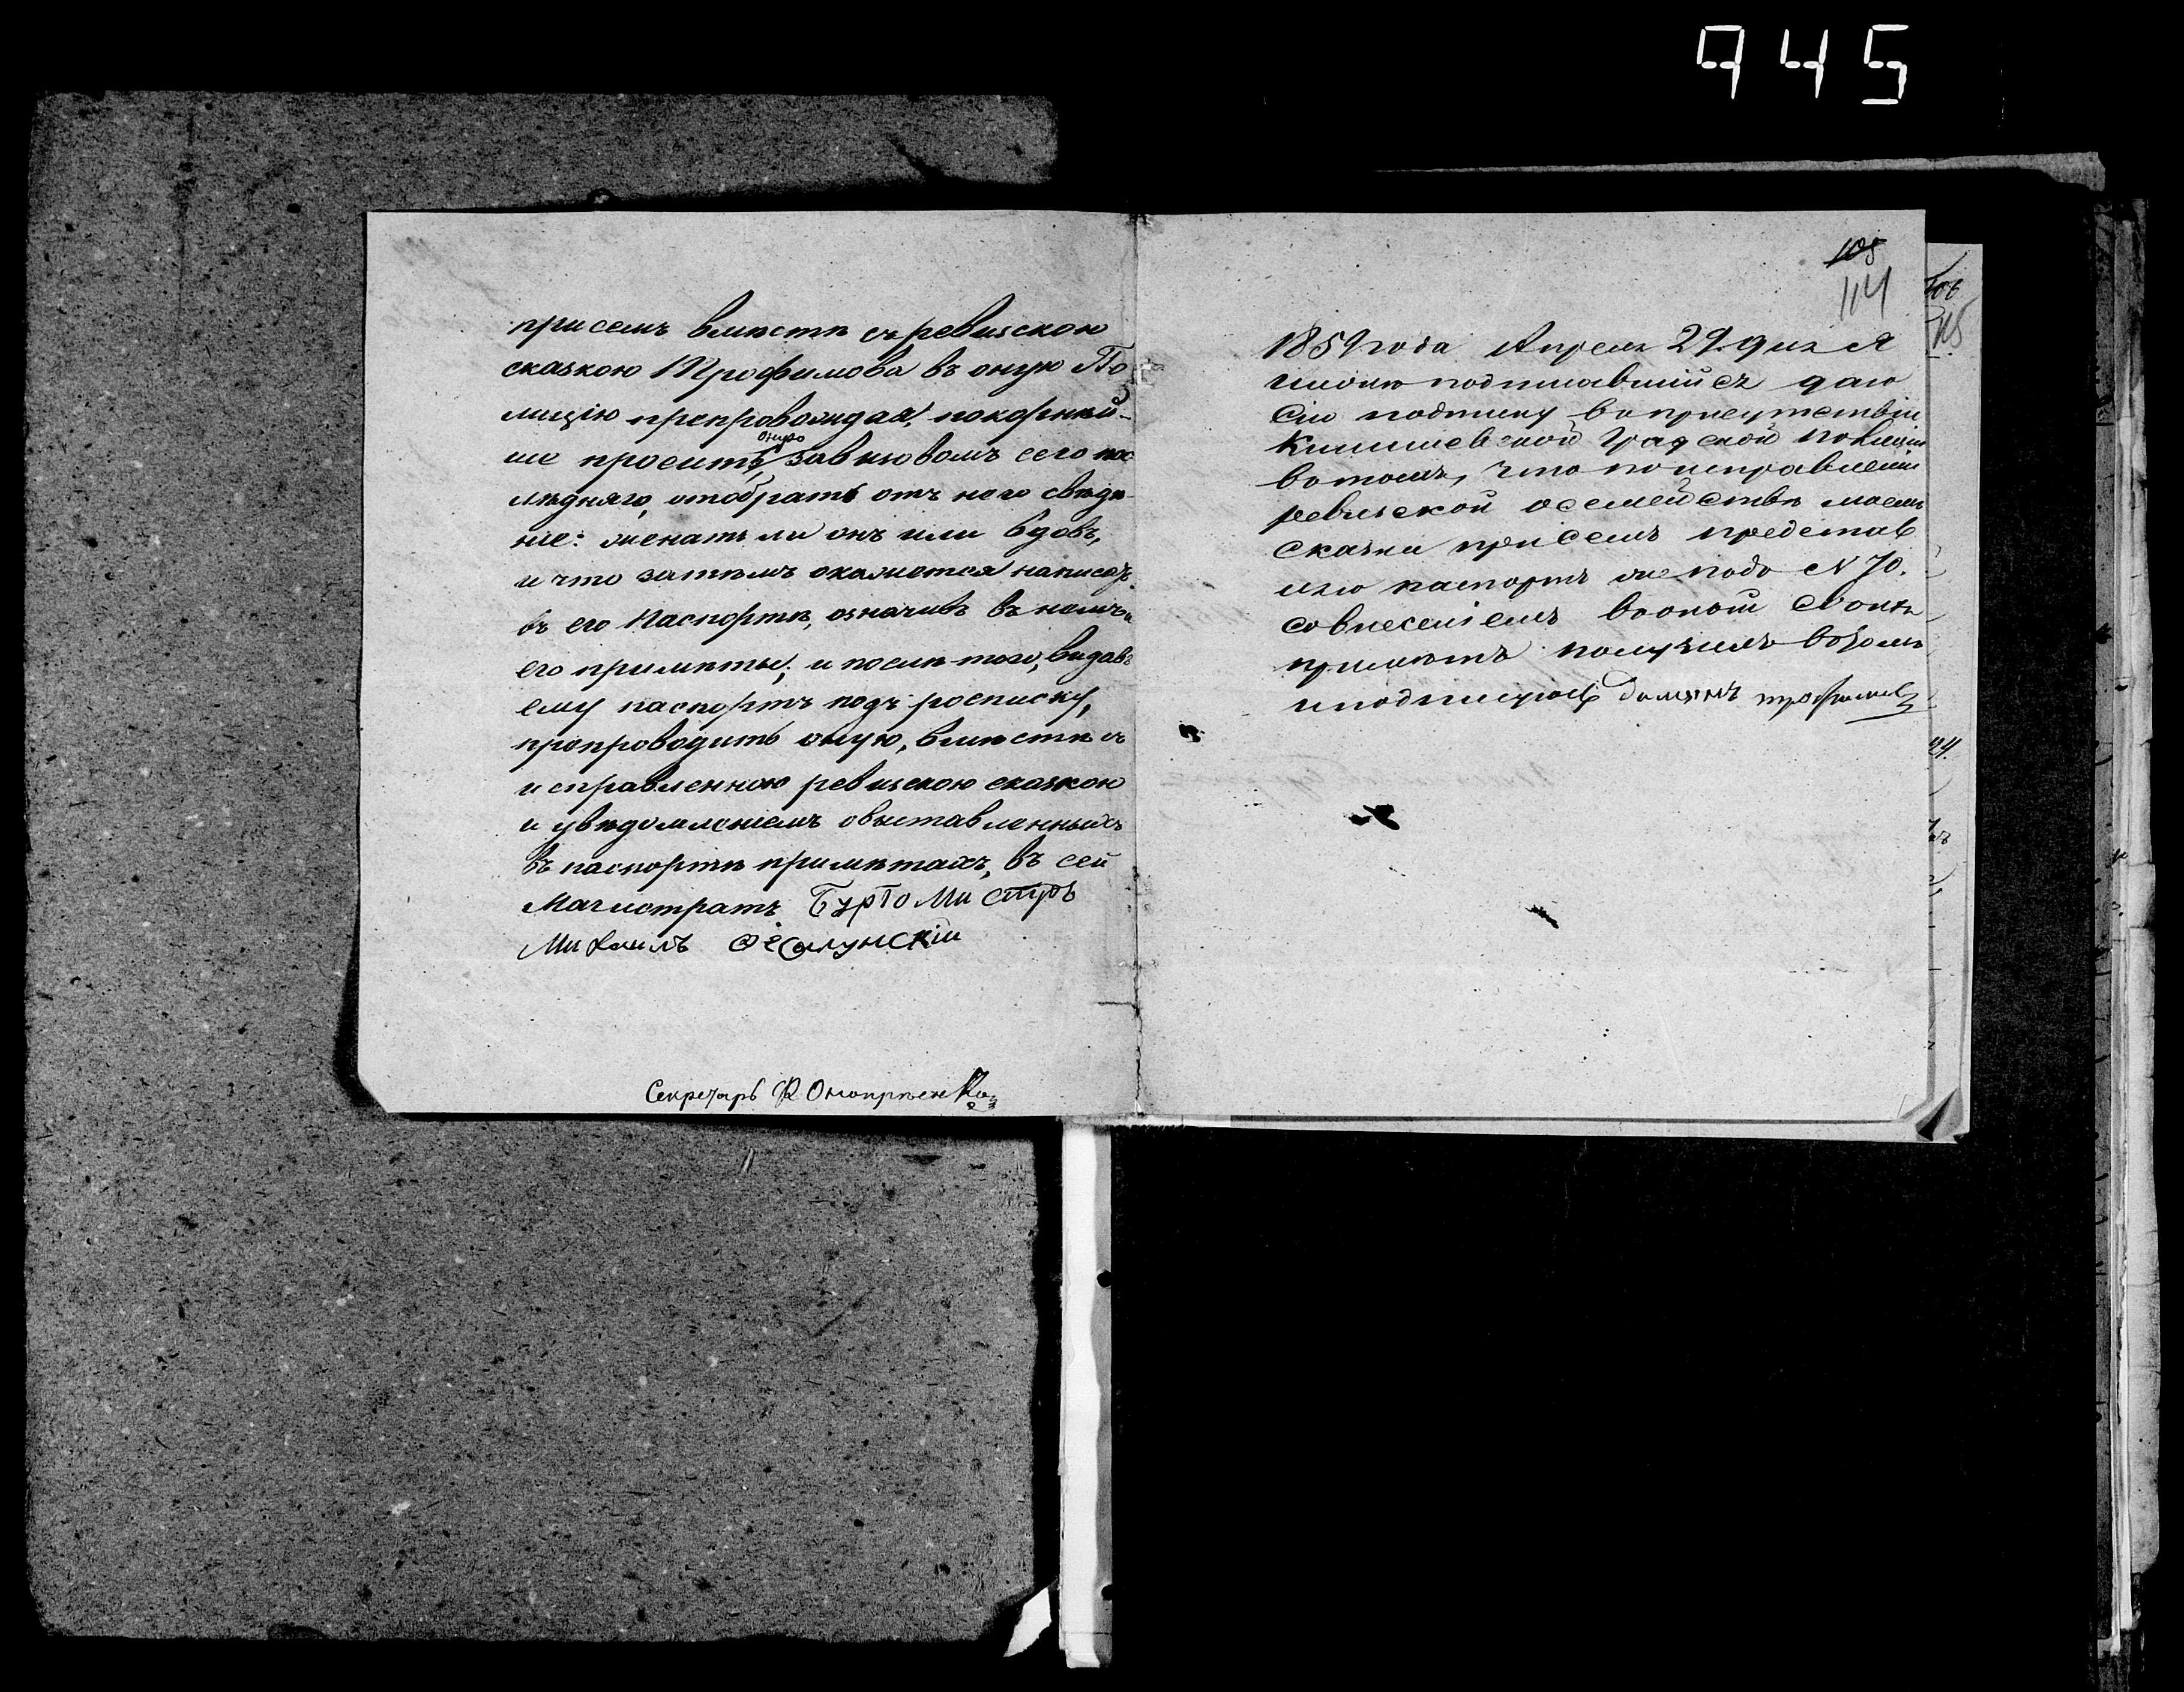 945
присемъ вместѣ съ ревизскою
сказкою Трофимова въ оную По
лицію препровождая, покорнѣй-
ше проситъ оную, завызовомъ сего пос
лѣдняго, отобрать отъ него свѣдѣ-
ніе: женатъ ли онъ или вдовъ,
и что затѣмъ окажется написать
въ его Паспортѣ, означивъ въ немъ и
его примѣты; и послѣ того, выдавъ
ему паспортъ подъ росписку,
препроводить оную, вмѣстѣ съ
исправленною ревизскою сказкою
и увѣдомленіемъ овыставленныхъ
въ паспортѣ примѣтахъ, въ сей
Магистратъ. Бургомистръ
Михаилъ
Секретарь Ѳ Оноприенко
105
114
1859 года Апреля 29. дня Я
ниже подписавшійся даю
сію подписку воприсутствіи
Кишиневской Градской полиции
вотомъ, что поисправленіи
ревизской осемействѣ моемъ
сказки присемъ представ
ихъ паспортъ же подо N 70.
совнесеніемъ воонои своихъ
примѣтъ получилъ вочемъ
иподписуюсь Трофимовъ
115
24.